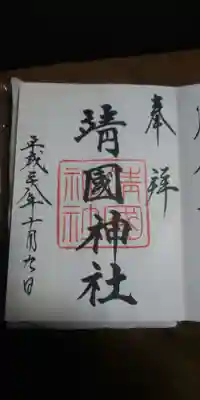 奉拝
靖國神社
靖國神社
平成三十年十月九日